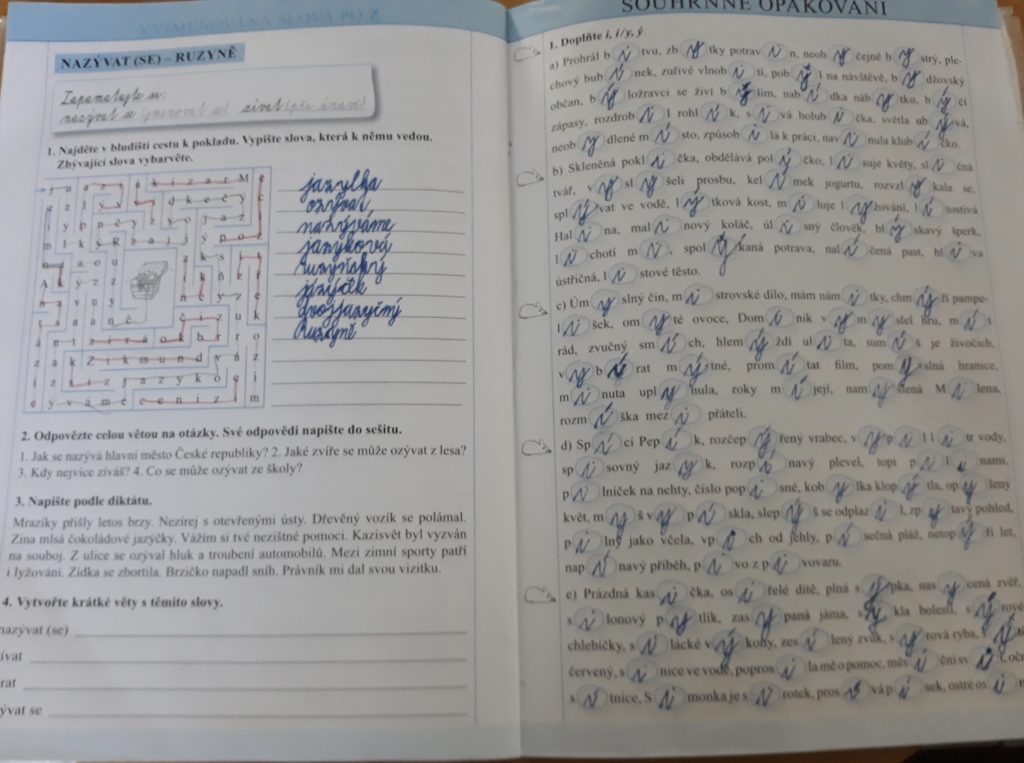 VYJMENOVANÁ SLOVA PO Z
NAZÝVAT (SE) – RUZYNĚ
Zapamatujte si:
nazývat se (jmenovat se)
1. Najděte v bludišti cestu k pokladu. Vypište slova, která k němu vedou.
Zbývající slova vybarvěte.
jazylka
ozývat
nazýváme
jazyková
ruzyňský
jazýček
dvojjazyčný
Ruzyně
2. Odpovězte celou větou na otázky. Své odpovědi napište do sešitu.
1. Jak se nazývá hlavní město České republiky? 2. Jaké zvíře se může ozývat z lesa?
3. Kdy nejvíce zíváš? 4. Co se může ozývat ze školy?
3. Napište podle diktátu.
Mrazíky přišly letos brzy. Nezírej s otevřenými ústy. Dřevěný vozík se polámal.
Zina mlsá čokoládové jazýčky. Vážím si tvé nezištné pomoci. Kazisvět byl vyzván
na souboj. Z ulice se ozýval hluk a troubení automobilů. Mezi zimní sporty patří
i lyžování. Zídka se zbortila. Brzičko napadl sníh. Právník mi dal svou vizitku.
4. Vytvořte krátké věty s těmito slovy.
nazývat (se)
ívat
írat
ývat se
SOUHRNNÉ OPAKOVÁNÍ
1. Doplňte i, í/y, ý.
a) Prohrál b i tvu, zb y tky potrav i n, neob y čejně b y strý, ple-
chový bub í nek, zuřivé vlnob i tí, pob ý l na návštěvě, b y džovský
občan, b ý ložravci se živí b ý lím, nab í dka náb y tku, b ý čí
zápasy, rozdrob i l rohl í k, s i vá holub i čka, světla ub ý vá,
neob y dlené m í sto, způsob i la k práci, nav i nula klub í čko.
b) Skleněná pokl i čka, obdělává pol í čko, l i suje květy, sl i čná
tvář, v y sl y šeli prosbu, kel í mek jogurtu, rozvzl y kala se,
spl ý vat ve vodě, l ý tková kost, m i luje l y žování, l í tostivá
Hal i na, mal i nový koláč, úl i sný člověk, bl ý skavý šperk,
l i chotí m i, spol y kaná potrava, nal í čená past, hl í va
ústřičná, l i stové těsto.
c) Úm y slný čin, m i strovské dílo, mám nám i tky, chm ý ří pampe-
l i šek, om y té ovoce, Dom i nik v y m y slel hru, m í t
rád, zvučný sm í ch, hlem ý ždí ul i ta, sum í š je živočich,
v y b í rat m ý tné, prom í tat film, pom y slná hranice,
m i nuta upl y nula, roky m í její, nam y šlená M i lena,
rozm í ška mezi přáteli.
d) Sp í cí Pep í k, rozčep ý řený vrabec, v y p i l l i tr vody,
sp i sovný jaz y k, rozp í navý plevel, topí p i l i nami,
p i lníček na nehty, číslo pop i sné, kob y lka klop ý tla, op y lený
květ, m y š v y p í skla, slep ý š se odplaz i l, zp y tavý pohled,
p i lný jako včela, vp i ch od jehly, p í sečná pláž, netop ý ří let,
nap í navý příběh, p i vo z p i vovaru.
e) Prázdná kas i čka, os i řelé dítě, plná s ý pka, nas y cená zvěř,
s i lonový p y tlík, zas y paná jáma, s y kla bolestí, s ý rové
chlebíčky, s i lácké v ý kony, zes í lený zvuk, s y rová ryba,
červený, s i nice ve vodě, popros i la mě o pomoc, měs í ční sv i t,
s i tnice, S i monka je s i rotek, pros o vá p í sek, ostré os i